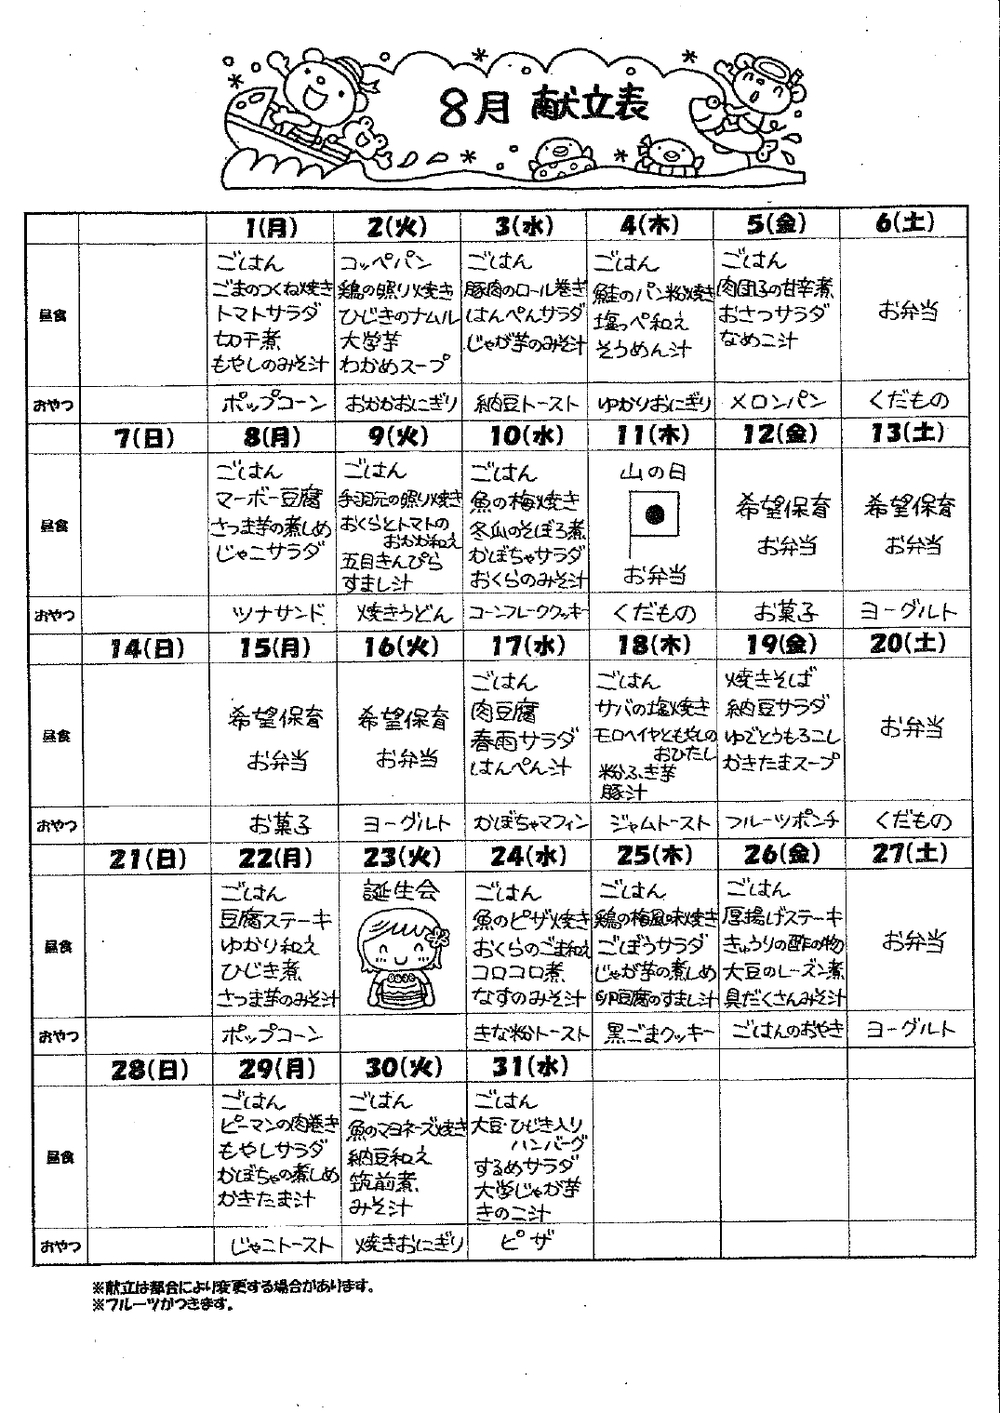 8月 献立表
1(月) 2(火) 3(水) 4(木) 5(金) 6(土)
昼食
ごはん
ごまのつくね焼き
トマトサラダ
切干煮
もやしのみそ汁
コッペパン
鶏の照り焼き
ひじきのナムル
大学芋
わかめスープ
ごはん
豚肉のロール巻き
はんぺんサラダ
じゃが芋のみそ汁
ごはん
鮭のパン粉焼き
塩っぺ和え
そうめん汁
ごはん
肉団子の甘辛煮
おさつサラダ
なめこ汁
お弁当
おやつ ポップコーン おかかおにぎり 納豆トースト ゆかりおにぎり メロンパン くだもの
7(日) 8(月) 9(火) 10(水) 11(木) 12(金) 13(土)
昼食
ごはん
マーボー豆腐
さつま芋の煮しめ
じゃこサラダ
ごはん
手羽元の照り焼き
おくらとトマトの
おかか和え
五目きんぴら
すまし汁
ごはん
魚の梅焼き
冬瓜のそぼろ煮
かぼちゃサラダ
おくらのみそ汁
山の日
お弁当
希望保育
お弁当
希望保育
お弁当
おやつ ツナサンド 焼きうどん コーンフレーククッキー くだもの お菓子 ヨーグルト
14(日) 15(月) 16(火) 17(水) 18(木) 19(金) 20(土)
昼食
希望保育
お弁当
希望保育
お弁当
ごはん
肉豆腐
春雨サラダ
はんぺん汁
ごはん
サバの塩焼き
モロヘイヤともやしの
おひたし
粉ふき芋
豚汁
焼きそば
納豆サラダ
ゆでとうもろこし
かきたまスープ
お弁当
おやつ お菓子 ヨーグルト かぼちゃマフィン ジャムトースト フルーツポンチ くだもの
21(日) 22(月) 23(火) 24(水) 25(木) 26(金) 27(土)
昼食
ごはん
豆腐ステーキ
ゆかり和え
ひじき煮
さつま芋のみそ汁
誕生会
ごはん
魚のピザ焼き
おくらのごま和え
コロコロ煮
なすのみそ汁
ごはん
鶏の梅風味焼き
ごぼうサラダ
じゃが芋の煮しめ
卵豆腐のすまし汁
ごはん
厚揚げステーキ
きゅうりの酢の物
大豆のレーズン煮
具だくさんみそ汁
お弁当
おやつ ポップコーン きな粉トースト 黒ごまクッキー ごはんのおやき ヨーグルト
28(日) 29(月) 30(火) 31(水)
昼食
ごはん
ピーマンの肉巻き
もやしサラダ
かぼちゃの煮しめ
かきたま汁
ごはん
魚のマヨネーズ焼き
納豆和え
筑前煮
みそ汁
ごはん
大豆・ひじき入り
ハンバーグ
するめサラダ
大学じゃが芋
きのこ汁
おやつ じゃこトースト 焼きおにぎり ピザ
※献立は都合により変更する場合があります。
※フルーツがつきます。